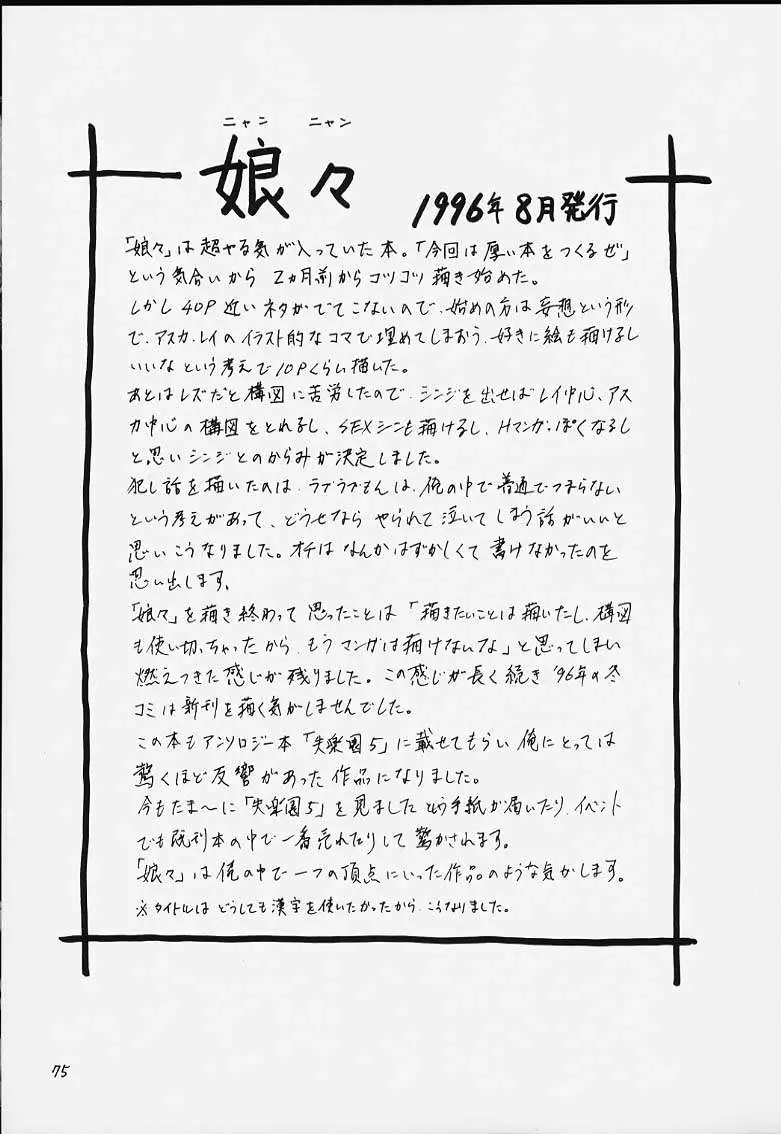 ニャン ニャン
娘々 1996年8月発行
「娘々」は超やる気が入っていた本。「今回は厚い本をつくるぜ」
という気合いから 2ヵ月前からコツコツ描き始めた。
しかし 40P 近いネタがでてこないので、始めの方は妄想という形
で、アスカ、レイのイラスト的なコマで埋めてしまおう、好きに絵も描けるし
いいなという考えで10Pくらい描いた。
あとはレズだと構図に苦労したので、シンジを出せばレイ中心、アス
カ中心の構図をとれるし、SEXシーンも描けるし、Hマンガっぽくなるし
と思いシンジとのからみが決定しました。
犯し話を描いたのは、ラブラブもんは、俺の中で普通でつまらない
という考えがあって、どうせなら やられて泣いてしまう話がいいと
思いこうなりました。オチはなんかはずかしくて書けなかったのを
思い出します。
「娘々」を描き終わって思ったことは「描きたいことは描いたし、構図
も使い切っちゃったから、もうマンガは描けないな」と思ってしまい
燃えつきた感じが残りました。この感じが長く続き '96年の冬
コミは新刊を描く気がしませんでした。
この本もアンソロジー本「失楽園5」に載せてもらい俺にとっては
驚くほど反響があった作品になりました。
今もたま〜に「失楽園5」を見ましたという手紙が届いたり、イベント
でも既刊本の中で一番売れたりして驚かされます。
「娘々」は俺の中で一つの頂点にいった作品のような気がします。
※タイトルは どうしても漢字を使いたかったから、こうなりました。
75